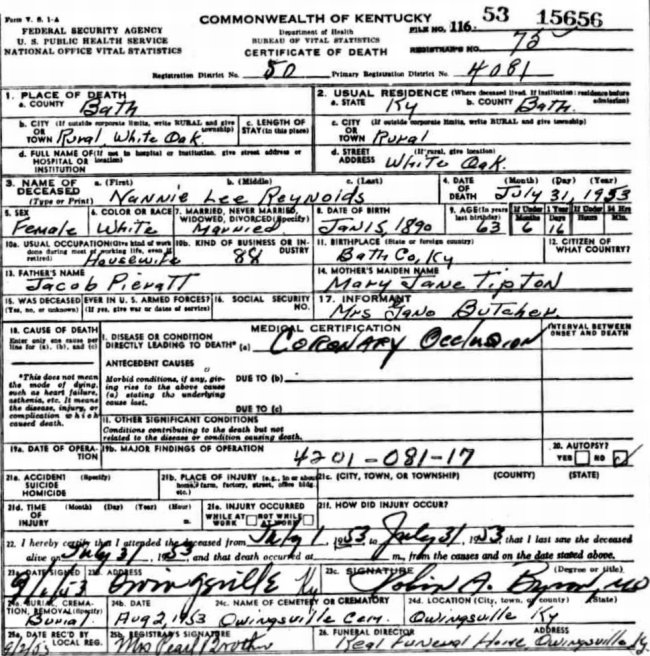 Form V. S. 1-A
COMMONWEALTH OF KENTUCKY
FILE NO. 116 53 15656
FEDERAL SECURITY AGENCY
U. S. PUBLIC HEALTH SERVICE
NATIONAL OFFICE VITAL STATISTICS
Department of Health
BUREAU OF VITAL STATISTICS
CERTIFICATE OF DEATH
REGISTRAR'S NO. 75
Registration District No. 50 Primary Registration District No. 4081
1. PLACE OF DEATH
a. COUNTY Bath
2. USUAL RESIDENCE (Where deceased lived. If institution: residence before admission)
a. STATE Ky b. COUNTY Bath
b. CITY (If outside corporate limits, write RURAL and give township) OR TOWN Rural, White Oak
c. LENGTH OF STAY (in this place)
c. CITY (If outside corporate limits, write RURAL and give township) OR TOWN Rural
d. FULL NAME OF (If not in hospital or institution, give street address or location) HOSPITAL OR INSTITUTION
d. STREET ADDRESS (If rural, give location) White Oak
3. NAME OF DECEASED (Type or Print) a. (First) b. (Middle) c. (Last)
Nannie Lee Reynolds
4. DATE OF DEATH (Month) (Day) (Year) July 31, 1953
5. SEX Female
6. COLOR OR RACE White
7. MARRIED, NEVER MARRIED, WIDOWED, DIVORCED (Specify) Married
8. DATE OF BIRTH Jan 15, 1890
9. AGE (In years last birthday) 63 If Under 1 Year Months 6 Days 16 If Under 24 Hrs Hours Min.
10a. USUAL OCCUPATION (Give kind of work done during most of working life, even if retired) Housewife
10b. KIND OF BUSINESS OR INDUSTRY 88
11. BIRTHPLACE (State or foreign country) Bath Co, Ky
12. CITIZEN OF WHAT COUNTRY?
13. FATHER'S NAME Jacob Pieratt
14. MOTHER'S MAIDEN NAME Mary Jane Tipton
15. WAS DECEASED EVER IN U. S. ARMED FORCES? (Yes, no, or unknown) (If yes, give war or dates of service)
16. SOCIAL SECURITY NO.
17. INFORMANT Mrs Jano Butcher
18. CAUSE OF DEATH
Enter only one cause per line for (a), (b), and (c)
MEDICAL CERTIFICATION
INTERVAL BETWEEN ONSET AND DEATH
I. DISEASE OR CONDITION DIRECTLY LEADING TO DEATH* (a) CORONARY Occlusion
*This does not mean the mode of dying, such as heart failure, asthenia, etc. It means the disease, injury, or complication which caused death.
ANTECEDENT CAUSES
Morbid conditions, if any, giving rise to the above cause (a) stating the underlying cause last.
DUE TO (b)
DUE TO (c)
II. OTHER SIGNIFICANT CONDITIONS
Conditions contributing to the death but not related to the disease or condition causing death.
19a. DATE OF OPERATION
19b. MAJOR FINDINGS OF OPERATION
4201-081-17
20. AUTOPSY? YES NO
21a. ACCIDENT SUICIDE HOMICIDE (Specify)
21b. PLACE OF INJURY (e.g., in or about home, farm, factory, street, office bldg. etc.)
21c. (CITY, TOWN, OR TOWNSHIP) (COUNTY) (STATE)
21d. TIME OF INJURY (Month) (Day) (Year) (Hour)
21e. INJURY OCCURRED WHILE AT WORK NOT WHILE AT WORK
21f. HOW DID INJURY OCCUR?
22. I hereby certify that I attended the deceased from July 1, 1953 to July 31, 1953, that I last saw the deceased
alive on July 31, 1953, and that death occurred at m., from the causes and on the date stated above.
23a. DATE SIGNED
23b. ADDRESS Owingsville Ky
23c. SIGNATURE (Degree or title)
24a. BURIAL, CREMATION, REMOVAL (Specify) Burial
24b. DATE Aug 2, 1953
24c. NAME OF CEMETERY OR CREMATORY Owingsville Cem.
24d. LOCATION (City, town, or county) (State) Owingsville Ky
25a. DATE REC'D BY LOCAL REG.
25b. REGISTRAR'S SIGNATURE Mrs Pearl Brother
26. FUNERAL DIRECTOR ADDRESS
Funeral Home Owingsville Ky.